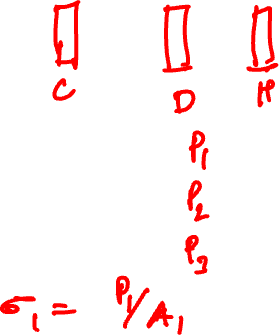 C D H
P₁
P₂
P₃
σ₁ = P₁/A₁